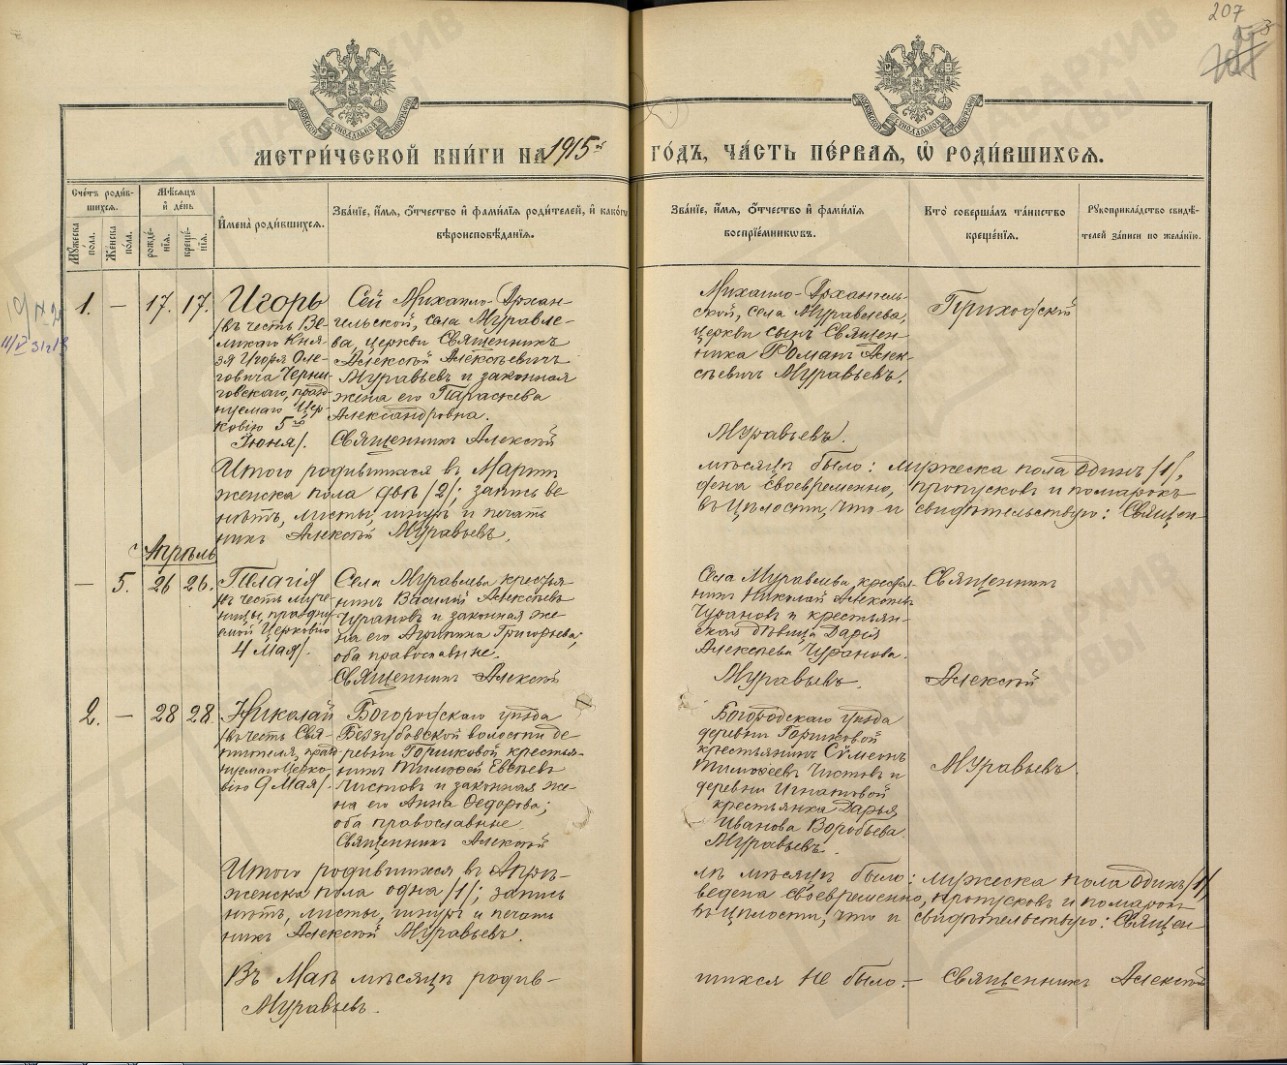 207
МЕТРИ́ЧЕСКОЙ КНИ́ГИ НА 1915й ГО́ДЪ, ЧА́СТЬ ПЕ́РВАЯ, Ѡ РОДИ́ВШИХСЯ.
Сче́тъ роди́вшихся.
Му́жеска по́ла.
Же́нска по́ла.
Мѣ́сяцъ и҆ де́нь
рожде́нїя.
креще́нїя.
И҆мена̀ роди́вшихся.
Зва́нїе, и҆́мя, ѻ҆́тчество и҆ фами́лїя роди́телей, и҆ како́гѡ вѣроисповѣ́данїя.
Зва́нїе, и҆́мя, ѻ҆́тчество и҆ фами́лїя воспрїе́мникѡвъ.
Кто̀ соверша́лъ та́инство креще́нїя.
Рꙋкоприкла́дство свидѣ́телей за́писи по жела́нїю.
1. — 17. 17.
Игорь
/въ честь Ве-
ликаго Кня-
зя Игоря Оле-
говича Черни-
говскаго, празд-
нуемаго Цер-
ковію 5го
Іюня/.
Сей Михаило-Архан-
гельской, села Муравле-
ва, церкви Священникъ
Алексѣй Алексѣевичъ
Муравьевъ и законная
жена его Параскева
Александровна.
Священникъ Алексѣй
Михаило-Архангель-
ской, села Муравлева,
церкви сынъ Священ-
ника Романъ Алек-
сѣевичъ Муравьевъ.
Муравьевъ.
Приходскій
Итого родившихся въ Мартѣ мѣсяцѣ было: мужеска пола одинъ /1/,
женска пола двѣ /2/; запись ведена своевременно, пропусковъ и помарокъ
нѣтъ, листы, шнуръ и печать въ цѣлости, что и свидѣтельствую: Священ-
никъ Алексѣй Муравьевъ.
Апрѣль
— 5. 26 26.
Пелагія
/въ честь муче-
ницы, праздну-
емой Церковію
4 Мая/.
Села Муравлева кресть-
нинъ Василій Алексѣевъ
Чурановъ и законная же-
на его Агрипина Григорьева;
оба православные.
Священникъ Алексѣй
Села Муравлева, кресть-
нинъ Николай Алексѣевъ
Чурановъ и крестьян-
ская дѣвица Дарія
Алексѣева Чуранова.
Муравьевъ.
Священникъ
Алексѣй
2. — 28 28.
Николай
/въ честь Свя-
тителя, празд-
нуемаго Церко-
вію 9 Мая/.
Богородскаго уѣзда
Беззубовской волости де-
ревни Горшковой крестья-
нинъ Тимофей Евсѣевъ
Чистовъ и законная же-
на его Анна Ѳедорова;
оба православные.
Священникъ Алексѣй
Богородскаго уѣзда
деревни Горшковой
крестьянинъ Сѵмеонъ
Тимофеевъ Чистовъ и
деревни Игнатовой
крестьянка Дарья
Иванова Воробьева.
Муравьевъ.
Муравьевъ.
Итого родившихся въ Апрѣ-
лѣ мѣсяцѣ было: мужеска пола одинъ /1/
женска пола одна /1/; запись
ведена своевременно, пропусковъ и помарокъ
нѣтъ, листы, шнуръ и печать
въ цѣлости, что и свидѣтельствую: Священ-
никъ Алексѣй Муравьевъ.
Въ Маѣ мѣсяцѣ родив-
шихся не было. — Священникъ Алексѣй
Муравьевъ.